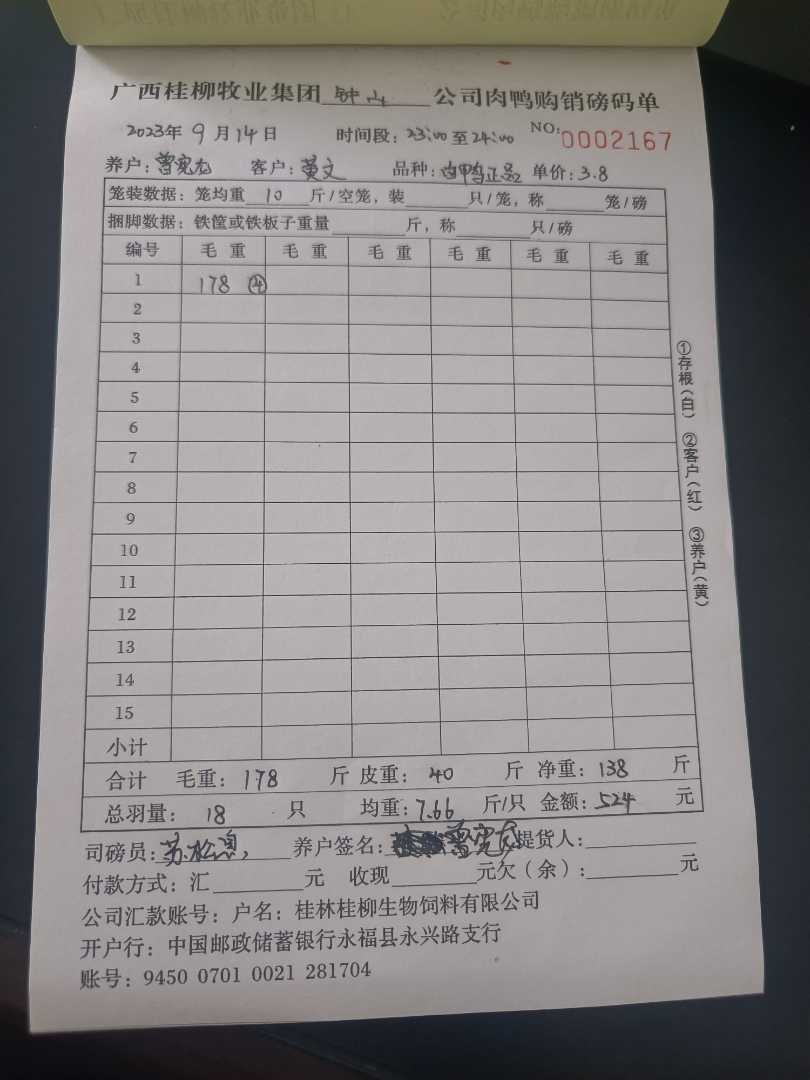 广西桂柳牧业集团 钟山 公司肉鸭购销磅码单
2023年 9 月 14 日 时间段: 23:00 至 24:00 NO: 0002167
养户: 曾宪龙 客户: 黄文 品种: 白鸭正品 单价: 3.8
笼装数据: 笼均重 10 斤/空笼, 装 只/笼, 称 笼/磅
捆脚数据: 铁筐或铁板子重量 斤, 称 只/磅
编号 毛 重 毛 重 毛 重 毛 重 毛 重 毛 重
1 178 ④
2
3
4
5
6
7
8
9
10
11
12
13
14
15
小计
合计 毛重: 178 斤 皮重: 40 斤 净重: 138 斤
总羽量: 18 只 均重: 7.66 斤/只 金额: 524 元
司磅员: 苏松 养户签名: 曾宪龙 提货人:
付款方式: 汇 元 收现 元欠(余): 元
公司汇款账号: 户名: 桂林桂柳生物饲料有限公司
开户行: 中国邮政储蓄银行永福县永兴路支行
账号: 9450 0701 0021 281704
①存根(白) ②客户(红) ③养户(黄)